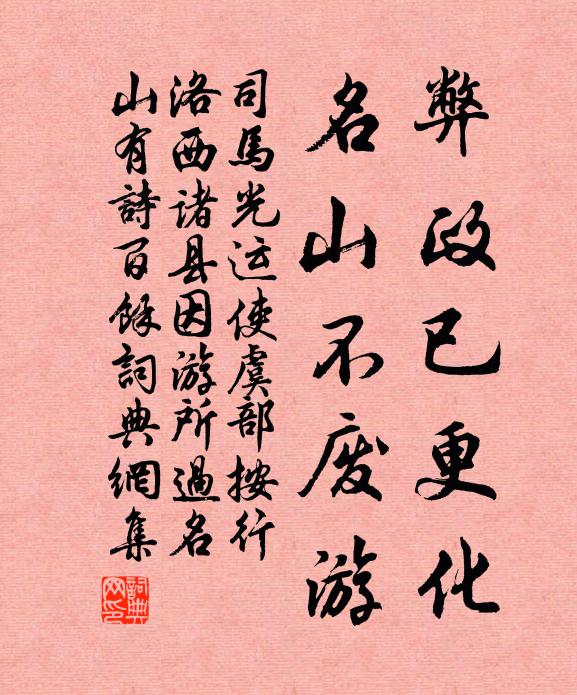 弊政已更化
名山不废游
司馬光运使虞部按行
洛西诸县因游所過名
山有詩百餘詞典網集
詞典网印